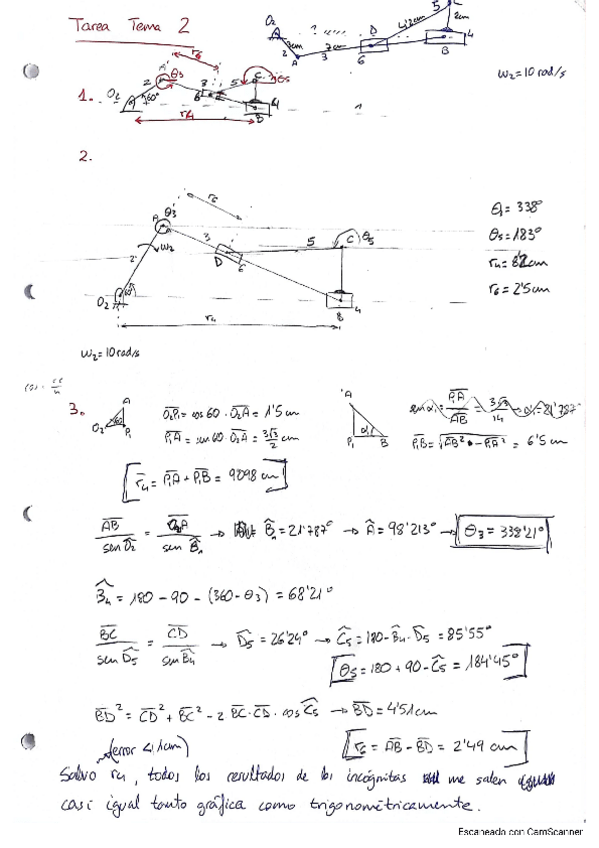 Tarea Tema 2
O₂ 2cm A 2 3 7cm D 6 4'2cm 5 2cm B 4
ω₂ = 10 rad/s
1. O₂ 60° 2 θ₃ r₆ 3 6 5 C θ₅ 4 B
r₄
2.
A θ₃ r₆ ω₂ 2 3 D 6 5 C θ₅ O₂ 60° B 4
r₄
θ₃ = 338°
θ₅ = 183°
r₄ = 8'2cm
r₆ = 2'5cm
ω₂ = 10 rad/s
3. A O₂ 60 P₁
O₂P₁ = cos 60 · O₂A = 1'5 cm
P₁A = sen 60 · O₂A = 3√3/2 cm
A P₁ α₁ B
sen α₁ = P₁A/AB = 3√3/14 → α₁ = 21'787°
P₁B = √(AB² - P₁A²) = 6'5 cm
[r₄ = P₁A + P₁B = 9'098 cm]
AB/sen O₂ = O₂A/sen B₂ → B̂ = 21'787° → Â = 98'213° → θ₃ = 338'21°
B̂₄ = 180 - 90 - (360 - θ₃) = 68'21°
BC/sen D₅ = CD/sen B₄ → D̂₅ = 26'24° → Ĉ₅ = 180 - B₄ - D₅ = 85'55°
[θ₅ = 180 + 90 - Ĉ₅ = 184'45°]
BD² = CD² + BC² - 2 BC·CD · cos Ĉ₅ → BD = 4'51cm
(error < 1cm)
[r₆ = AB - BD = 2'49 cm]
Salvo r₄, todos los resultados de las incógnitas me salen
casi igual tanto gráfica como trigonométricamente.
Escaneado con CamScanner